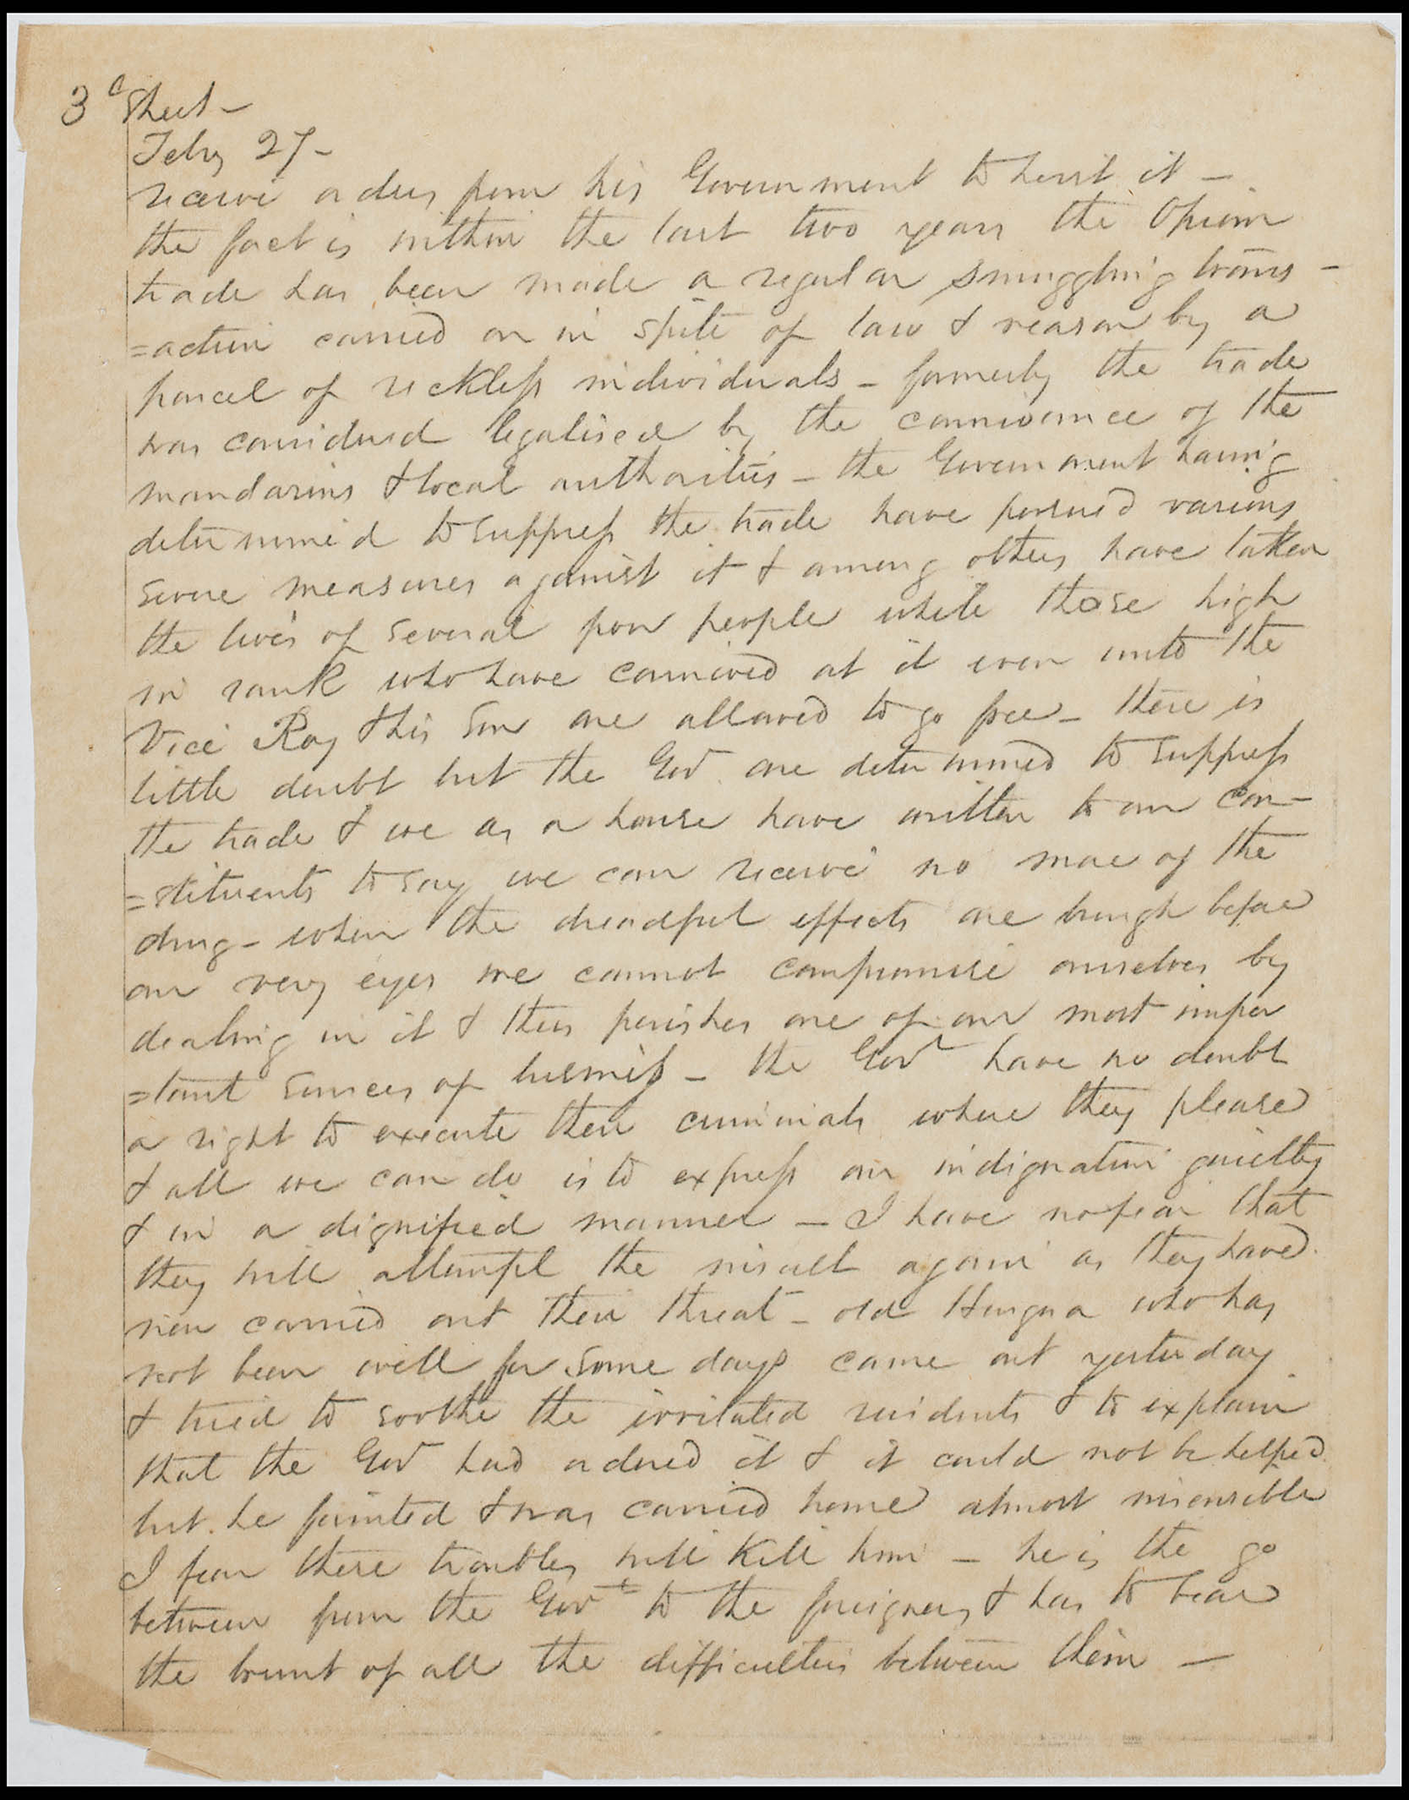 3d Sheet -
Feby 27 -
receive orders from his Government to hoist it -
the fact is within the last two years the Opium
trade has been made a regular smuggling trans -
=action carried on in spite of law & reason by a
parcel of reckless individuals - formerly the trade
was considered legalised by the connivance of the
mandarins & local authorities - the Government having
determined to suppress the trade have pursued various
severe measures against it & among others have taken
the lives of several poor people while those high
in rank who have connived at it even unto the
Vice Roy & his Son are allowed to go free - there is
little doubt but the Govt are determined to suppress
the trade & we as a house have written to our con-
=stituents to say we can receive no more of the
drug - when the dreadful effects are brough before
our very eyes we cannot compromise ourselves by
dealing in it & thus perishes one of our most impor
=tant sources of business - the Govt have no doubt
a right to execute their criminals where they please
& all we can do is to express our indignation quietly
& in a dignified manner - I have no fear that
they will attempt the insult again as they have
now carried out their threat - old Houqua who has
not been well for some days came out yesterday
& tried to soothe the irritated residents & to explain
that the Govt had ordered it & it could not be helped
but he fainted & was carried home almost insensible
I fear these troubles will kill him - he is the go
between from the Govt to the foreigners & has to bear
the brunt of all the difficulties between them -